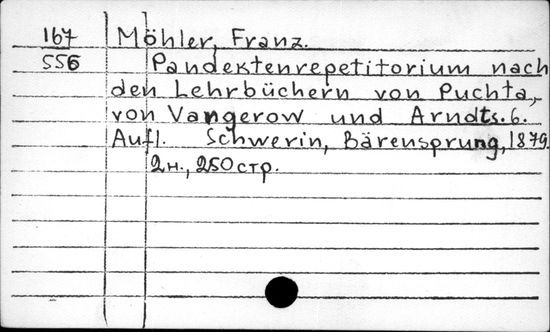 167 Möhler, Franz.
556 Pandektenrepetitorium nach
den Lehrbüchern von Puchta,
von Vangerow und Arndts. 6.
Aufl. Schwerin, Bärensprung, 1879.
2н., 250стр.